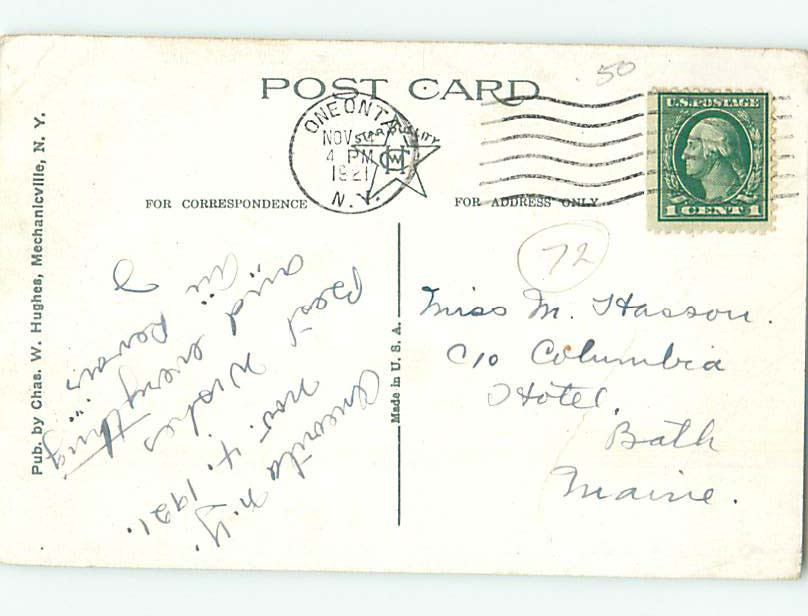 50
POST CARD
ONEONTA
NOV
4 PM
1921
N.Y.
STAR QUALITY
CWH
U.S. POSTAGE
1 CENT 1
FOR CORRESPONDENCE
FOR ADDRESS ONLY
72
Oneonta N.Y.
Nov. 4, 1921.
Best Wishes
and everything
Miss M. Hasson.
C/o Columbia
Hotel,
Bath
Maine.
Made in U. S. A.
Pub. by Chas. W. Hughes, Mechanicville, N. Y.